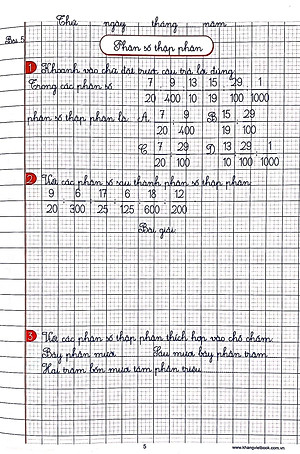 Thứ ngày tháng năm
Bài 5
Phân số thập phân
1 Khoanh vào chữ đặt trước câu trả lời đúng
Trong các phân số 7/20 ; 9/400 ; 13/10 ; 15/19 ; 29/100 ; 1/1000
phân số thập phân là A. 7/20 ; 9/400 B. 15/19 ; 29/100
C. 7/20 ; 29/100 D. 13/10 ; 29/100 ; 1/1000
2 Viết các phân số sau thành phân số thập phân
9/20 ; 6/300 ; 17/25 ; 6/125 ; 18/600 ; 12/200
Bài giải
3 Viết các phân số thập phân thích hợp vào chỗ chấm
Bảy phần mười Sáu mươi bảy phần trăm
Hai trăm bốn mươi tám phần triệu
5
www.khangvietbook.com.vn